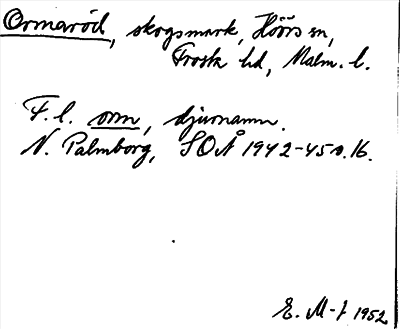 Ormaröd, skogsmark, Höörs sn,
Frosta hd, Malm. l.
F. l. orm, djurnamn.
N. Palmborg, SOÅ 1942-45 s. 16.
E. M-f 1952